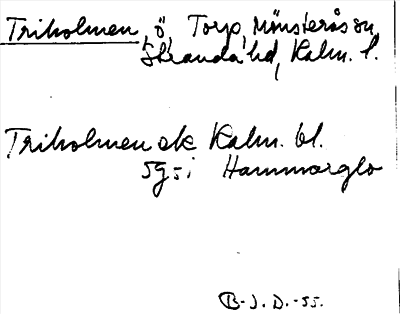 Triholmen, ö, Torp, Mönsterås sn,
Stranda hd, Kalm. l.
Triholmen ek Kalm. bl.
5g5i Hammarglo
B-J. D.-55.